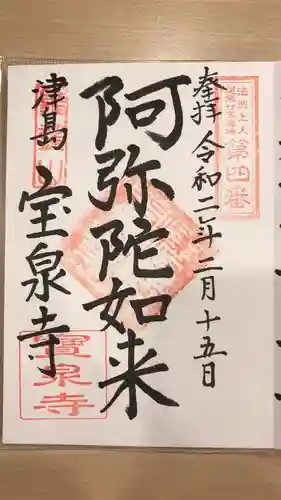 奉拝
令和二年二月十五日
法然上人
第四番
阿弥陀如来
津島
宝泉寺
寶泉寺